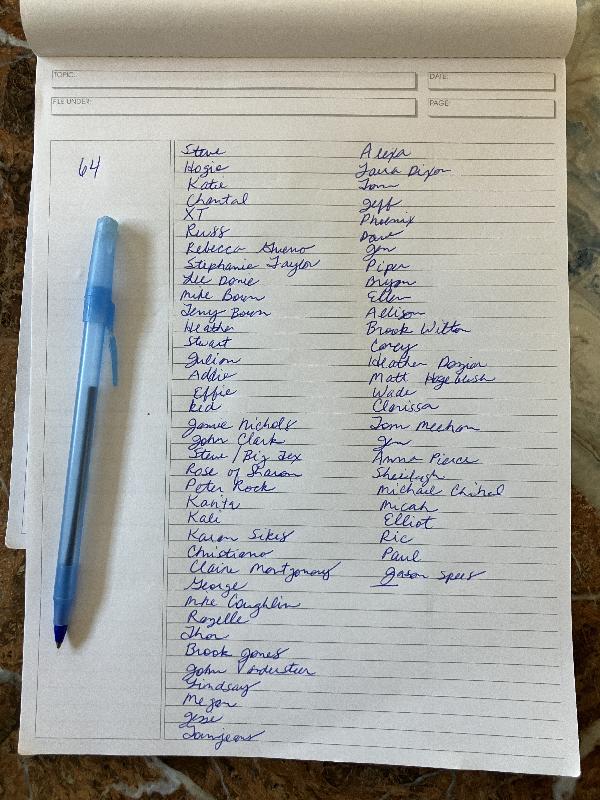 TOPIC:
DATE:
FILE UNDER:
PAGE:
64
Steve
Hogie
Katie
Chantal
XT
Russ
Rebecca
Stephanie Taylor
Lee Dorie
Mike Bown
Terry Bown
Heather
Stuart
Julian
Addie
Effie
Kid
Jamie Nichols
John Clark
Steve / Big Tex
Rose of Sharon
Peter Rock
Kanta
Kali
Karen Sikes
Christiano
Claire Montgomery
George
Mike Coughlin
Rozelle
Thor
Brook Jones
John
Lindsay
Megan
Jesse
Alexa
Laura Dixon
Tom
Jeff
Phoenix
Dave
Jen
Piper
Bryon
Ellen
Allison
Brook Witton
Corey
Heather Dozier
Matt
Wade
Clarissa
Tom Meehan
Jen
Anna Pierce
Sheilagh
Michael
Micah
Elliot
Ric
Paul
Jason Spees